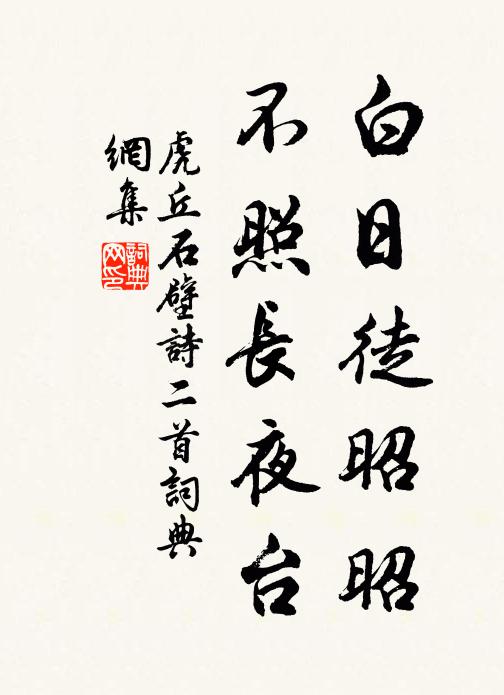 白日徒昭昭
不照長夜台
虎丘石壁詩二首詞典
網集
詞典
网印